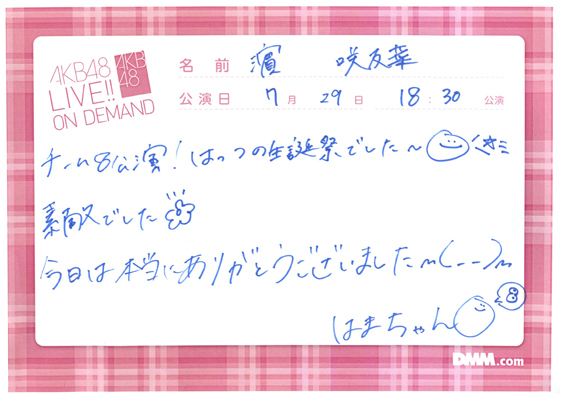 AKB48
LIVE!!
ON DEMAND
AKB
48
名 前 濵 咲友菜
公演日 7月 29日 18:30 公演
チーム8公演!はっつの生誕祭でした〜
素敵でした
今日は本当にありがとうございましたm(_ _)m
はまちゃん
8
DMM.com